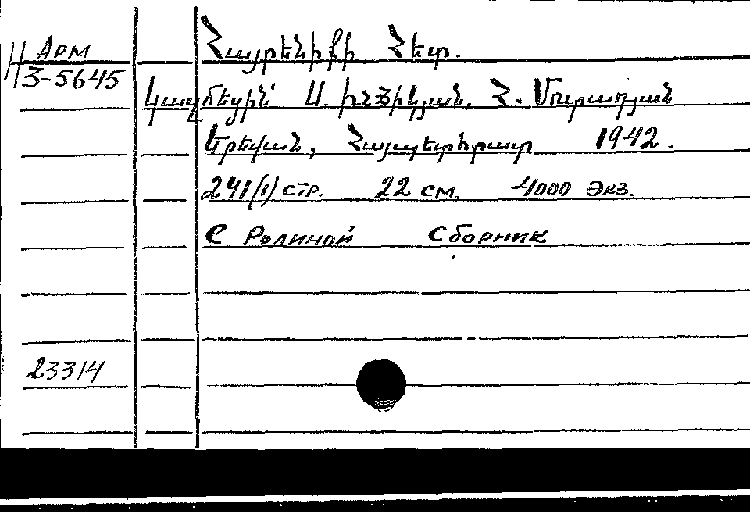 Арм
3-5645
Հայրենիքի Հետ.
Կազմեցին՝ Ս. Ինճիկյան. Հ. Մուրադյան
Երեվան, Հայպետհրատ 1942.
241(1) стр. 22 см. 4000 экз.
С Родиной Сборник
23314